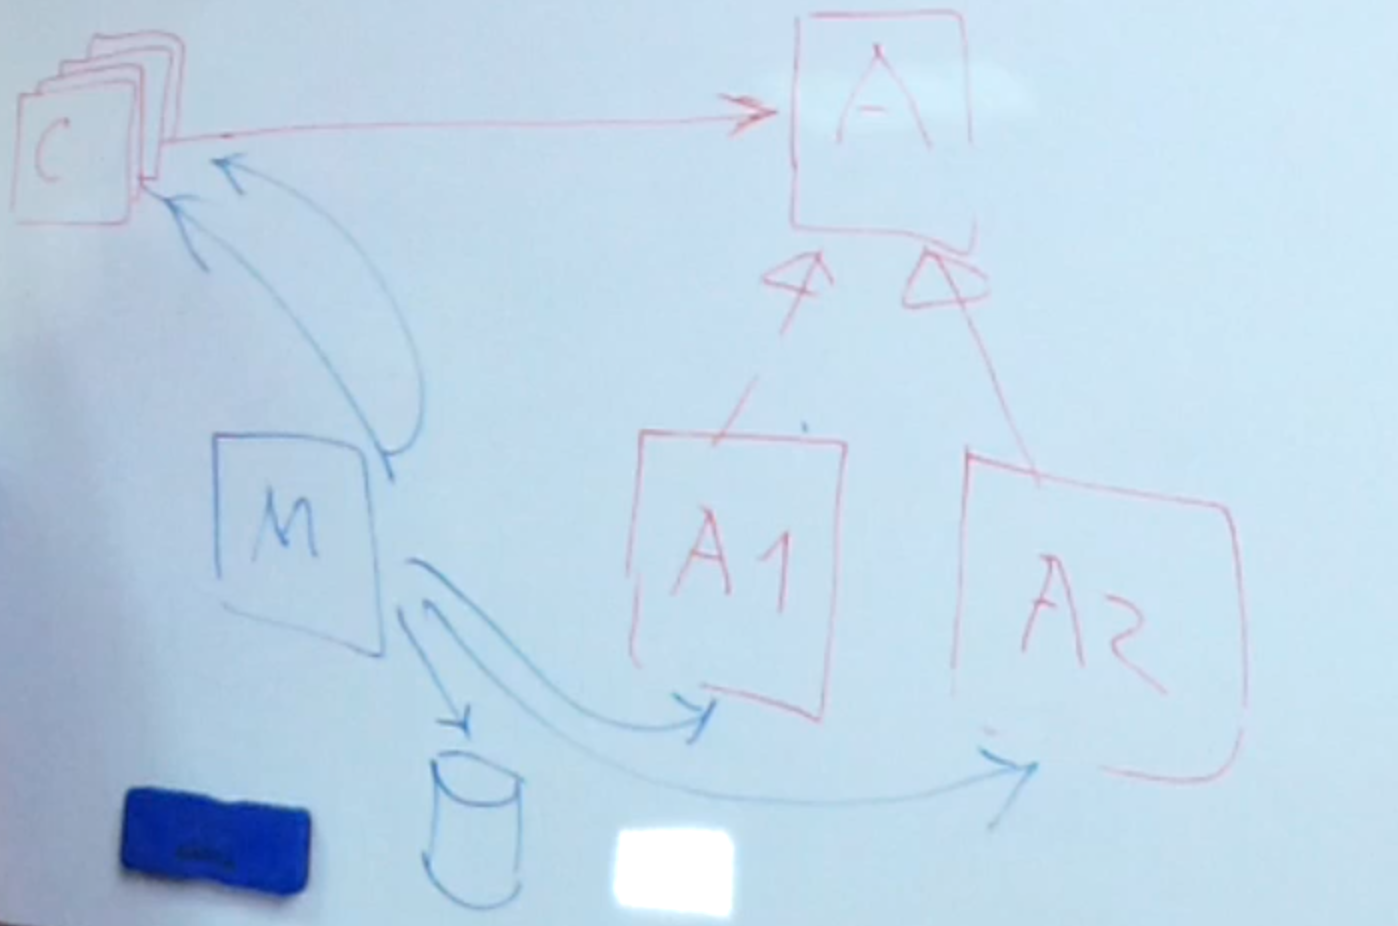 C
A
M
A1
A2